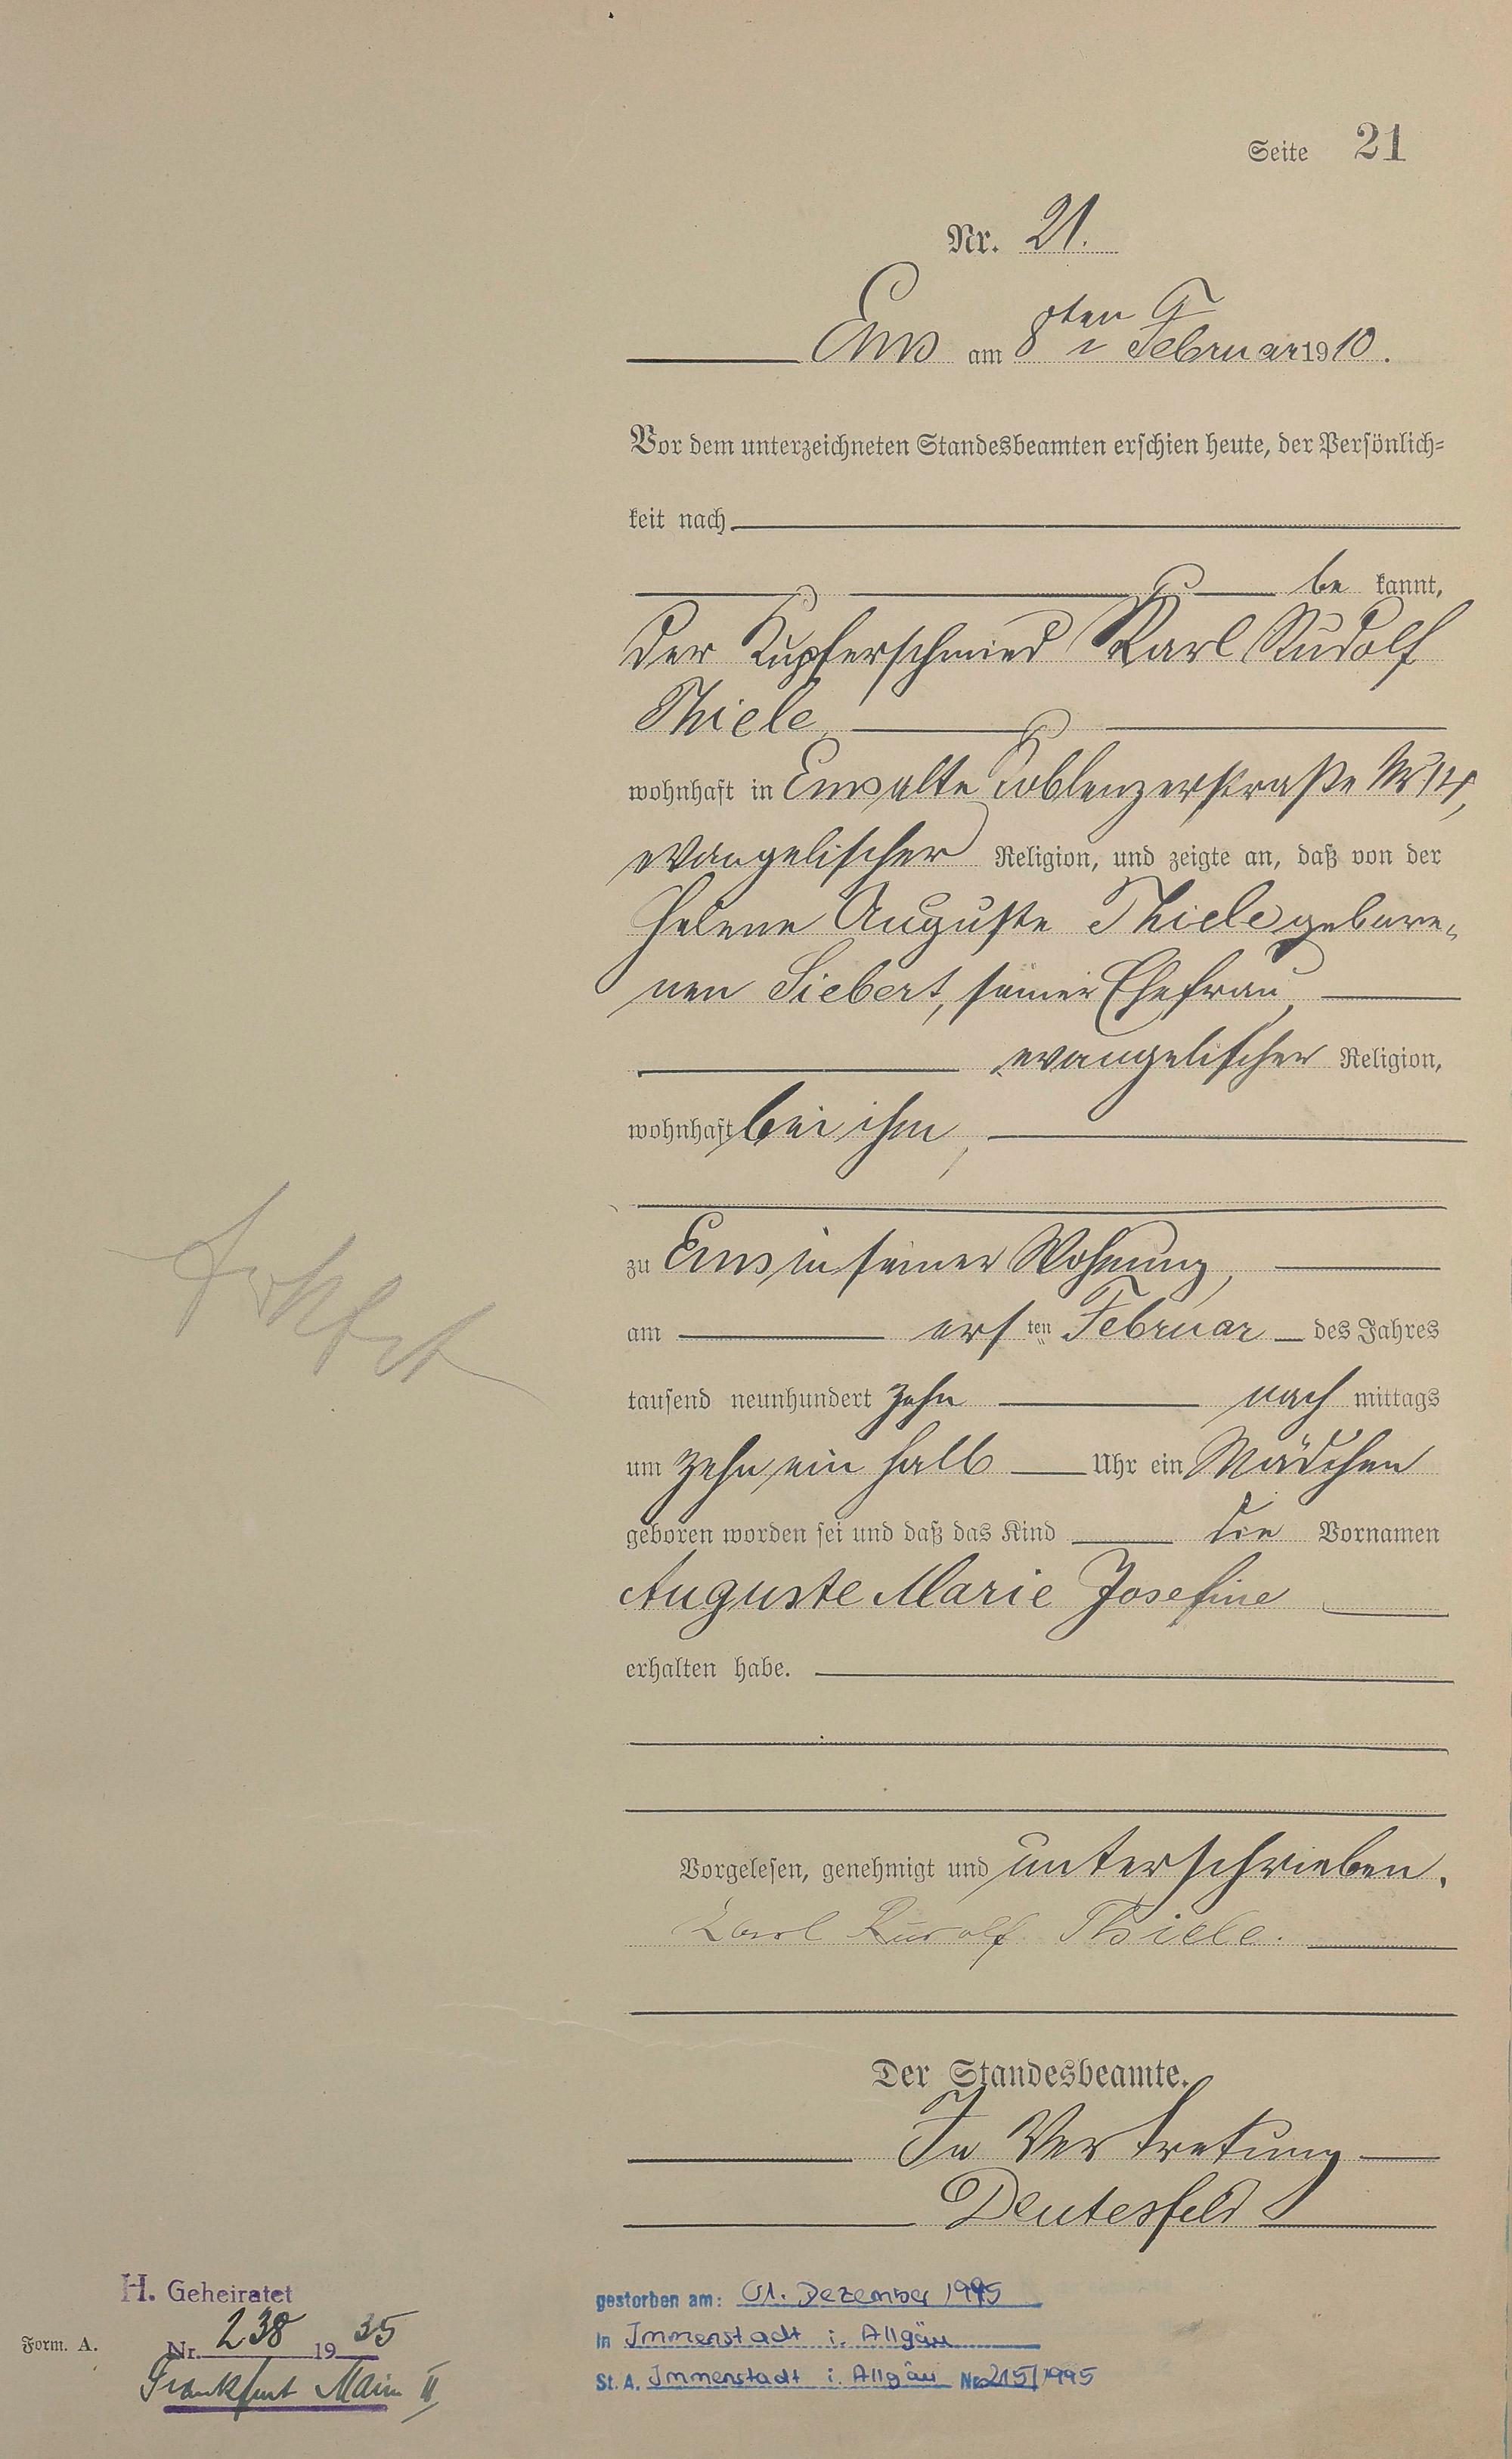 Seite 21
Nr. 21.
Ems am 8ten Februar 1910.
Vor dem unterzeichneten Standesbeamten erschien heute, der Persönlich-
keit nach
be kannt,
der Kupferschmied Karl Rudolf
Thiele,
wohnhaft in Ems alte Coblenzerstraße Nr 14,
evangelischer Religion, und zeigte an, daß von der
Helene Auguste Thiele gebore-
nen Siebert, seiner Ehefrau,
evangelischer Religion,
wohnhaft bei ihm,
zu Ems in seiner Wohnung,
am ersten Februar des Jahres
tausend neunhundert zehn nach mittags
um zehn ein halb Uhr ein Mädchen
geboren worden sei und daß das Kind die Vornamen
Auguste Marie Josefine
erhalten habe.
Vorgelesen, genehmigt und unterschrieben.
Karl Rudolf Thiele.
Der Standesbeamte.
In Vertretung
Deutesfeld
H. Geheiratet
Nr. 238 1935
Frankfurt Main II
Form. A.
gestorben am: 01. Dezember 1995
in Immenstadt i. Allgäu
St. A. Immenstadt i. Allgäu Nr. 215/1995